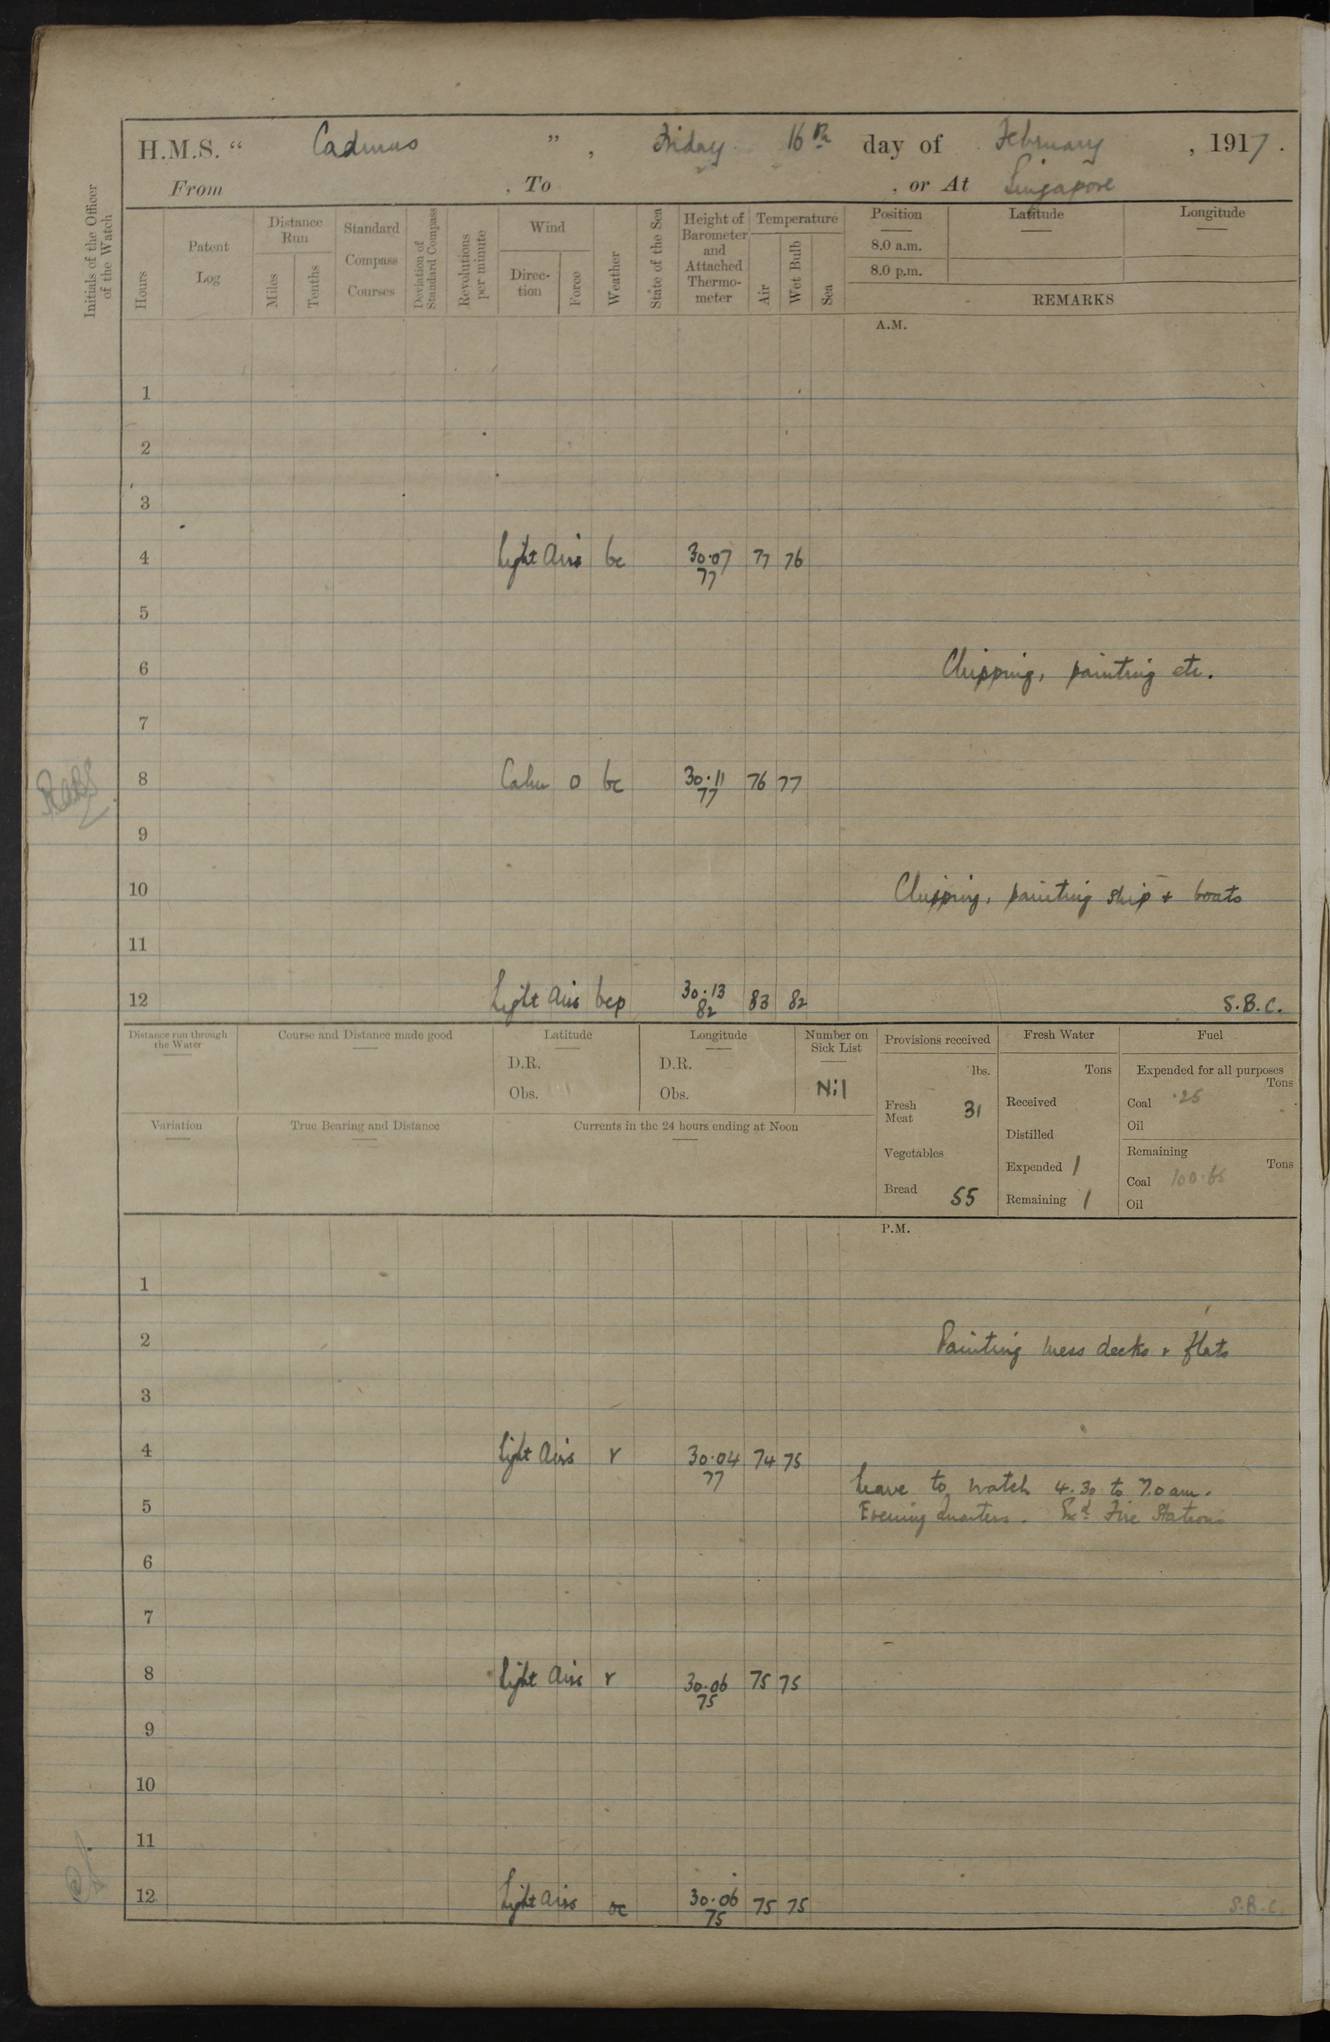 H.M.S. “ Cadmus ” , Friday 16th day of February , 1917.
From , To , or At Singapore
Initials of the Officer of the Watch
Hours
Patent Log
Distance Run
Miles
Tenths
Standard Compass Courses
Deviation of Standard Compass
Revolutions per minute
Wind
Direc-tion
Force
Weather
State of the Sea
Height of Barometer and Attached Thermo-meter
Temperature
Air
Wet Bulb
Sea
Position
Latitude
Longitude
8.0 a.m.
8.0 p.m.
REMARKS
A.M.
1
2
3
4 Light Airs bc 30.07 77 77 76
5
6 Chipping, painting etc.
7
8 Calm 0 bc 30.11 77 76 77
9
10 Chipping, painting ship + boats
11
12 Light Airs bcp 30.13 82 83 82 S.B.C.
Distance run through the Water
Course and Distance made good
Latitude
D.R.
Obs.
Longitude
D.R.
Obs.
Number on Sick List
Nil
Variation
True Bearing and Distance
Currents in the 24 hours ending at Noon
Provisions received
lbs.
Fresh Meat 31
Vegetables
Bread 55
Fresh Water
Tons
Received
Distilled
Expended 1
Remaining 1
Fuel
Expended for all purposes
Tons
Coal .25
Oil
Remaining
Tons
Coal 100.65
Oil
P.M.
1
2 Painting mess decks + flats
3
4 Light Airs r 30.04 77 74 75
Leave to watch 4.30 to 7.0 am.
5 Evening Quarters. Exd Fire Stations
6
7
8 Light Airs r 30.06 75 75 75
9
10
11
12 Light Airs oc 30.06 75 75 75 S.B.C.